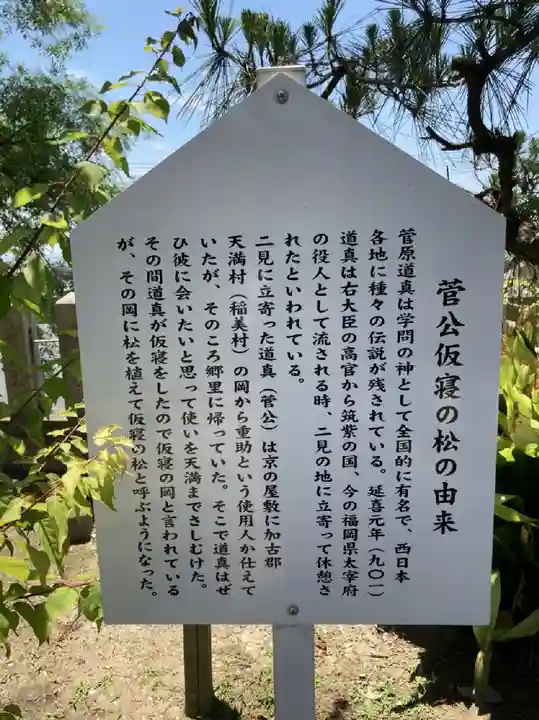 菅公仮寝の松の由来
菅原道真は学問の神として全国的に有名で、西日本
各地に種々の伝説が残されている。延喜元年（九〇一）
道真は右大臣の高官から筑紫の国、今の福岡県太宰府
の役人として流される時、二見の地に立寄って休憩さ
れたといわれている。
二見に立寄った道真（菅公）は京の屋敷に加古郡
天満村（稲美村）の岡から重助という使用人か仕えて
いたが、そのころ郷里に帰っていた。そこで道真はぜ
ひ彼に会いたいと思って使いを天満までさしむけた。
その間道真が仮寝をしたので仮寝の岡と言われている
が、その岡に松を植えて仮寝の松と呼ぶようになった。